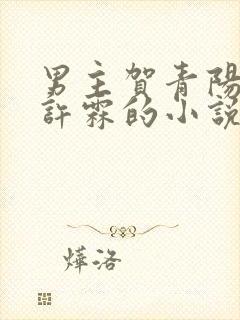 男主賀青陽
許霖的小說
燁洛